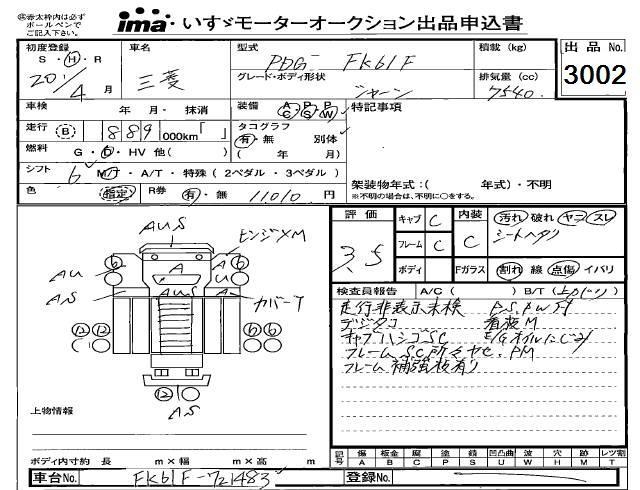 ㊟赤太枠内は必ず
ボールペンで
ご記入下さい。
ima いすゞモーターオークション出品申込書
初度登録 S・H・R 20 4 月
車名 三菱
型式 PDG- FK61F
積載 (kg)
出品No. 3002
グレード・ボディ形状
排気量 (cc) 7540
車検 年 月・ 抹消
装備 A/C P/S P/W
特記事項
走行 B 889 000km「 」
タコグラフ 有・無 別体 ( 年 月)
燃料 G・D・HV 他( )
シフト 6 M/T・A/T・特殊(2ペダル・3ペダル)
架装物年式:( 年式)・不明
※不明の場合は、年式不明に○をする。
色 指定 R券 有・無 11010 円
評価 3.5
キャブ C
内装 C
汚れ 破れ ヤコ スレ
シートヘタリ
フレーム C
ボディ
Fガラス 割れ 線 点傷 イバリ
AUS
ヒンジXM
AU
AS
A
AUS
A
カバーY
6 6
12 12 6 6
12
AS
検査員報告 A/C( ) B/T(上のバリ)
走行非表示未検 P.S,PW付
デジタコ 看板M
キャブハシゴSC E/Gオイルにじみ
フレームSC所々ヤセ.PM
フレーム補強板有り
上物情報
ボディ内寸約 長 m×幅 m×高 m
記号 傷A 板金B 腐C 塗P 錆S 凹凸曲U 波W 穴H 跡M レツ割T
車台No. FK61F-721483
登録No.